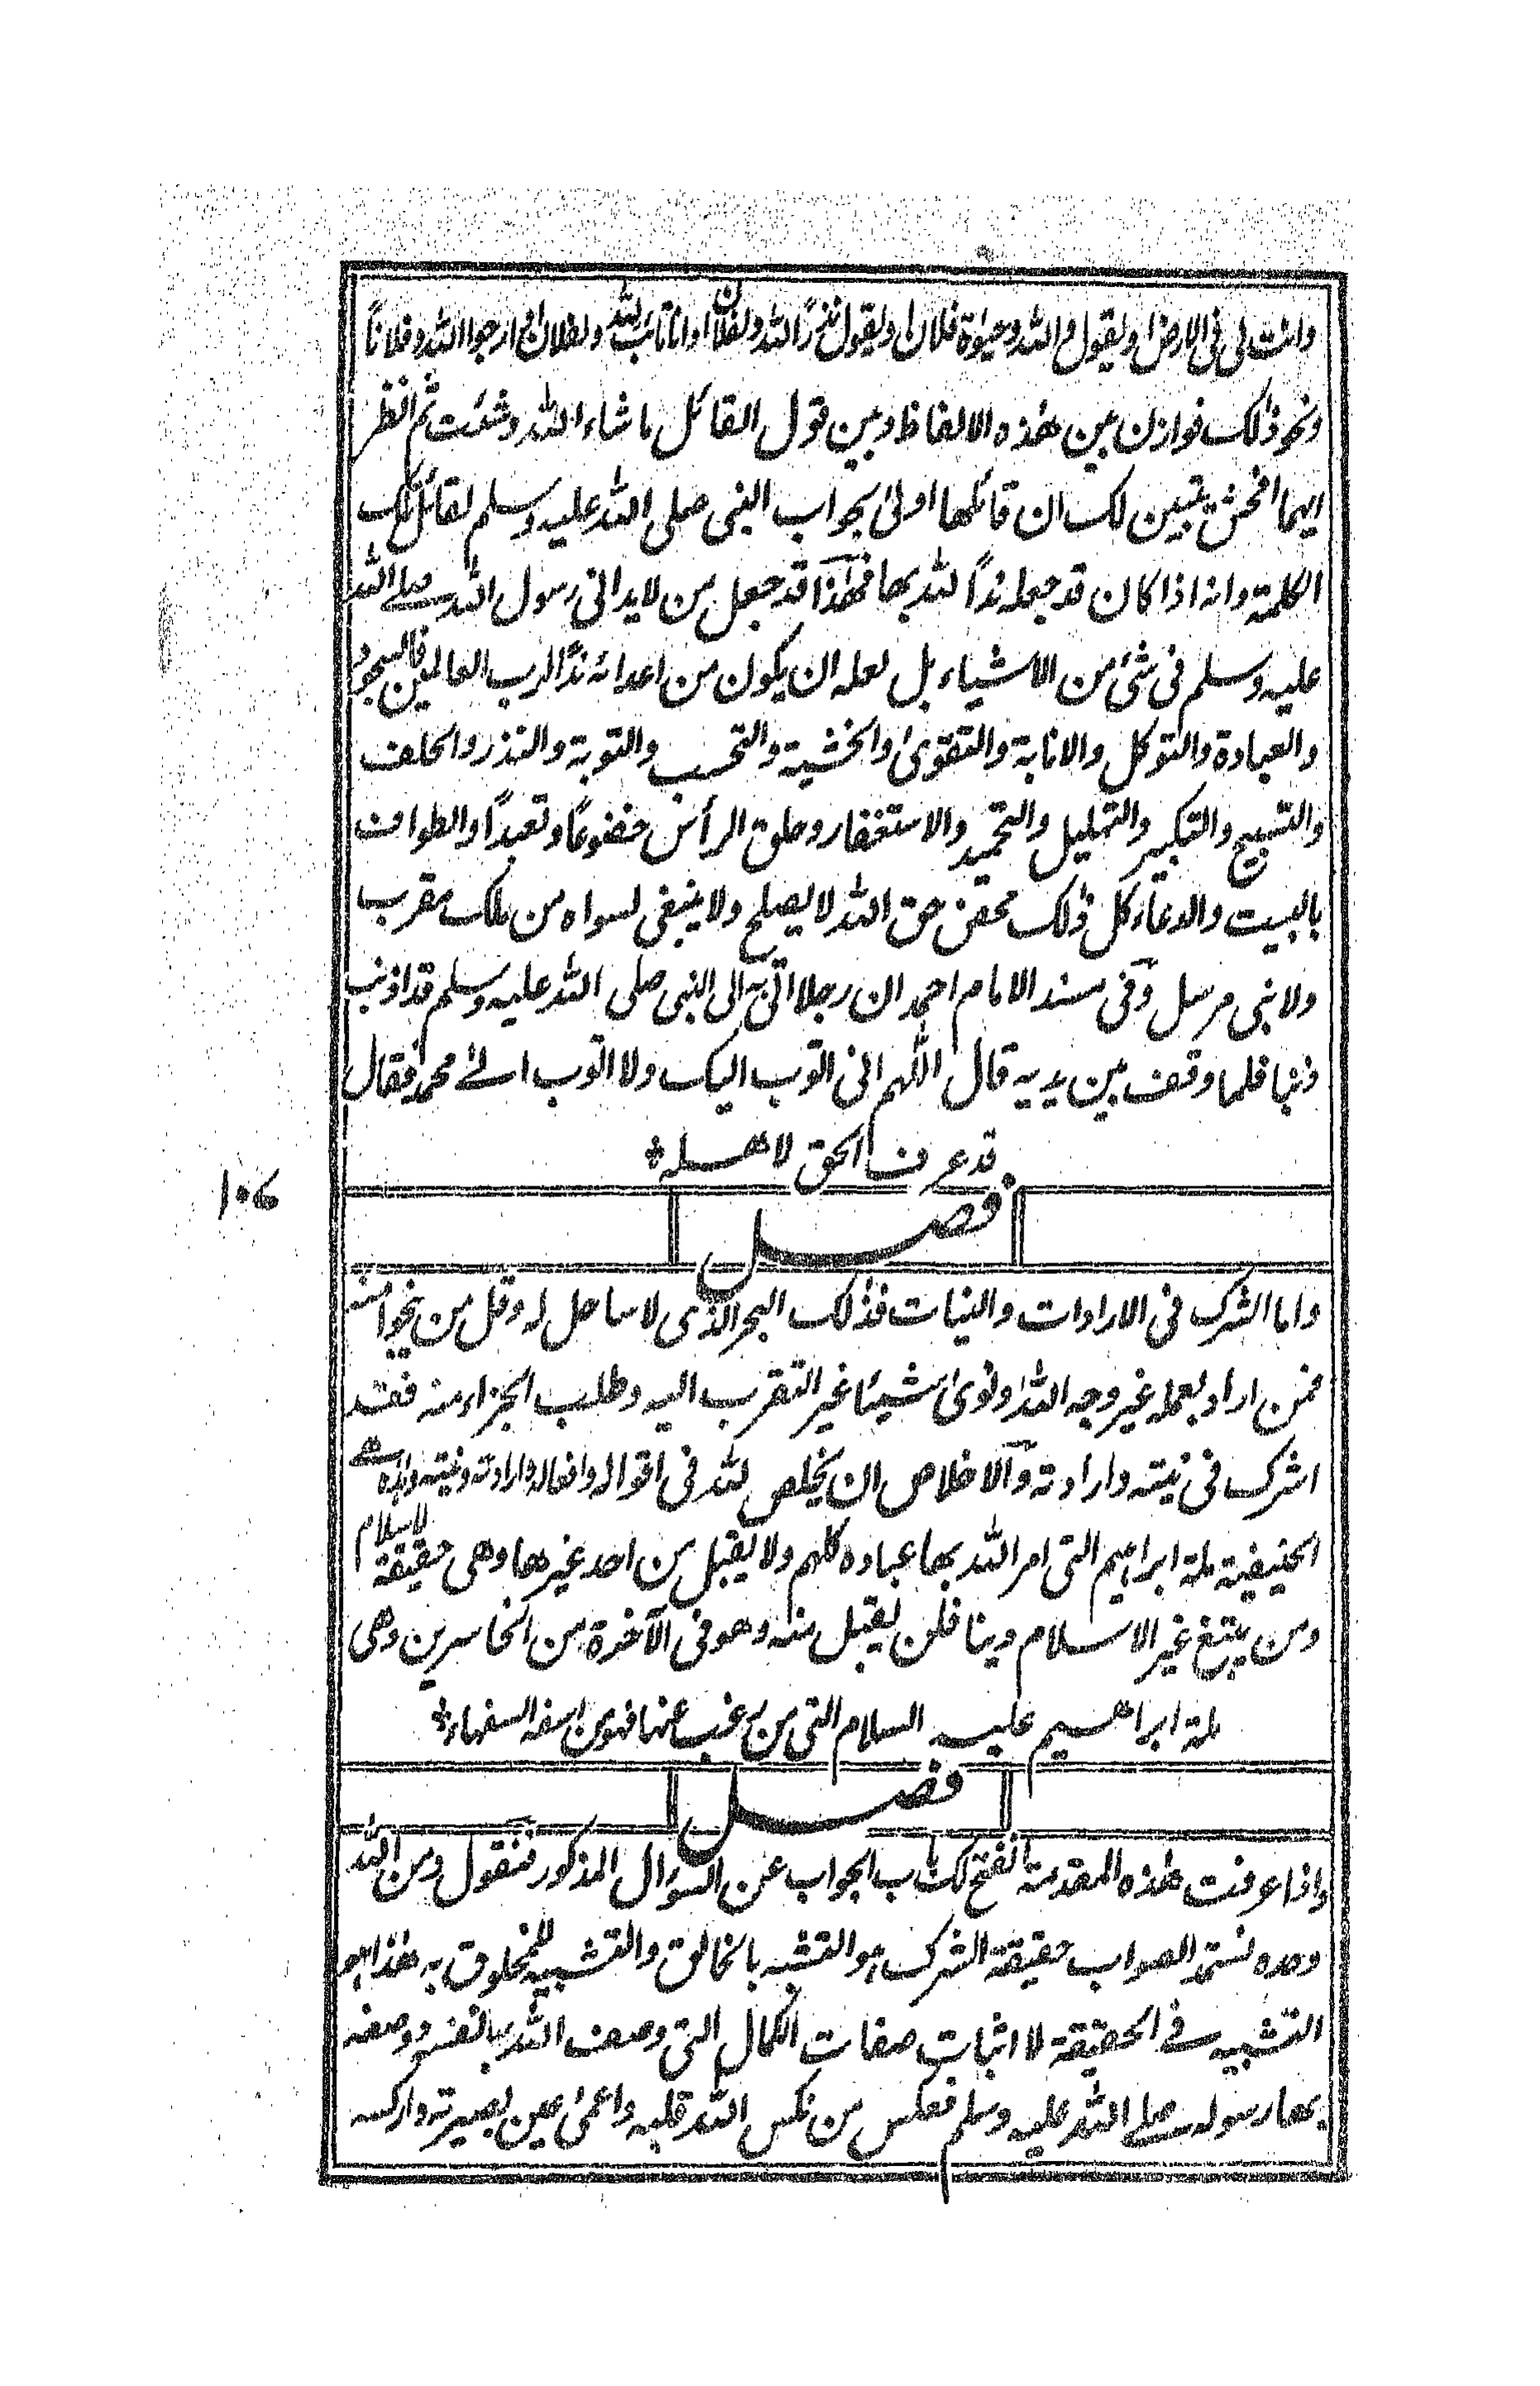 وانت لى فى الارض او يقول والله وحيوة فلان او يقول نذرًا لله ولفلان او انا تائب لله ولفلان او ارجوا الله وفلانًا
ونحو ذلك فوازن بين هذه الالفاظ وبين قول القائل ما شاء الله وشئت ثم انظر
ايهما افحش يتبين لك ان قائلها اولىٰ بجواب النبى صلى الله عليه وسلم لقائل تلك
الكلمة وانه اذا كان قد جعله ندًا لله بها فهذا قد جعل من لا يدانى رسول الله صلے الله
عليه وسلم فى شئ من الاشياء بل لعله ان يكون من اعدائه ندًا لرب العالمين فالسجود
والعبادة والتوكل والانابة والتقوىٰ والخشية والتحسب والتوبة والنذر والحلف
والتسبيح والتكبير والتهليل والتحميد والاستغفار وحلق الرأس خضوعًا وتعبدًا والطواف
بالبيت والدعاء كل ذلك محض حق الله لا يصلح ولا ينبغى لسواه من ملك مقرب
ولا نبى مرسل وفى مسند الامام احمد ان رجلا اتى به الى النبى صلى الله عليه وسلم قد اذنب
ذنبا فلما وقف بين يديه قال اللهم انى اتوب اليك ولا اتوب الے محمد فقال
قد عرف الحق لاهله
١٠٦
فصل
واما الشرك فى الارادات والنيات فذلك البحر الذى لا ساحل له وقل من ينجوا منه
فمن اراد بعمله غير وجه الله ونوىٰ شيئا غير التقرب اليه وطلب الجزاء منه فقد
اشرك فى نيته وارادته والاخلاص ان يخلص لله فى اقواله وافعاله وارادته ونيته وهذه هے
الحنيفية ملة ابراهيم التى امر الله بها عباده كلهم ولا يقبل من احد غيرها وهى حقيقة الاسلام
ومن يبتغ غير الاسلام دينا فلن يقبل منه وهو فى الآخرة من الخاسرين وهى
ملة ابراهيم عليه السلام التى من رغب عنها فهو من اسفه السفهاء
فصل
واذا عرفت هذه المقدمة انفتح لك باب الجواب عن السؤال المذكور فنقول ومن الله
وحده نستمد الصواب حقيقة الشرك هو التشبه بالخالق والتشبيه للمخلوق به هذا هو
التشبيه فے الحقيقة لا اثبات صفات الكمال التى وصف الله بها نفسه ووصفه
بها رسوله صلے الله عليه وسلم فعكس من نكس الله قلبه واعمىٰ عين بصيرته واركسه